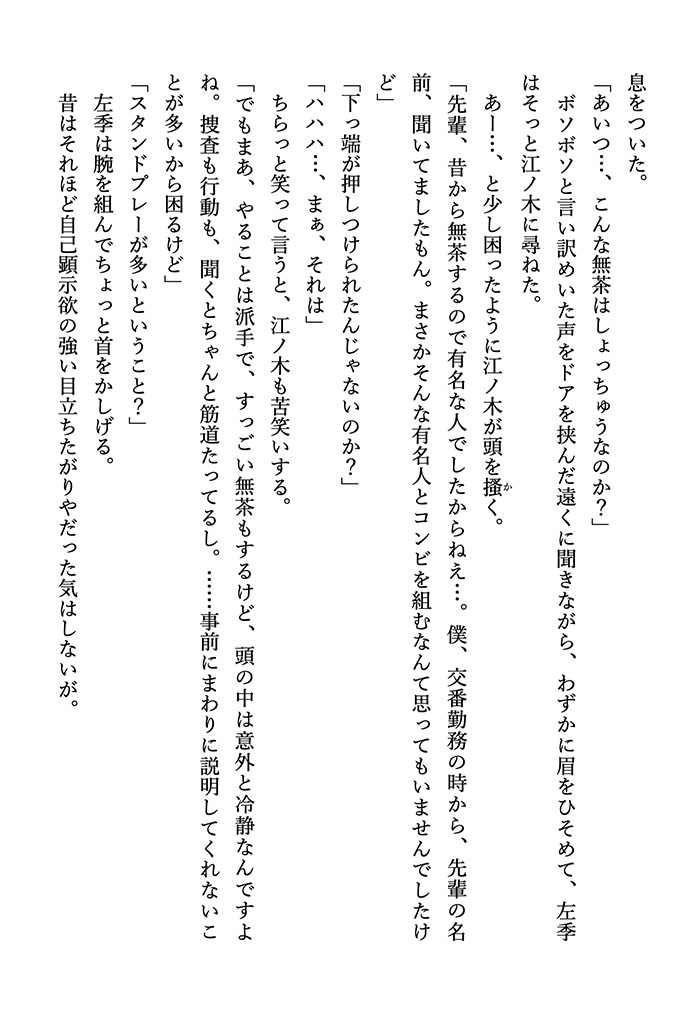 息をついた。
「あいつ…、こんな無茶はしょっちゅうなのか？」
ボソボソと言い訳めいた声をドアを挟んだ遠くに聞きながら、わずかに眉をひそめて、左季
はそっと江ノ木に尋ねた。
あー…、と少し困ったように江ノ木が頭を掻かく。
「先輩、昔から無茶するので有名な人でしたからねえ…。僕、交番勤務の時から、先輩の名
前、聞いてましたもん。まさかそんな有名人とコンビを組むなんて思ってもいませんでしたけ
ど」
「下っ端が押しつけられたんじゃないのか？」
「ハハハ…、まぁ、それは」
ちらっと笑って言うと、江ノ木も苦笑いする。
「でもまあ、やることは派手で、すっごい無茶もするけど、頭の中は意外と冷静なんですよ
ね。捜査も行動も、聞くとちゃんと筋道たってるし。……事前にまわりに説明してくれないこ
とが多いから困るけど」
「スタンドプレーが多いということ？」
左季は腕を組んでちょっと首をかしげる。
昔はそれほど自己顕示欲の強い目立ちたがりやだった気はしないが。